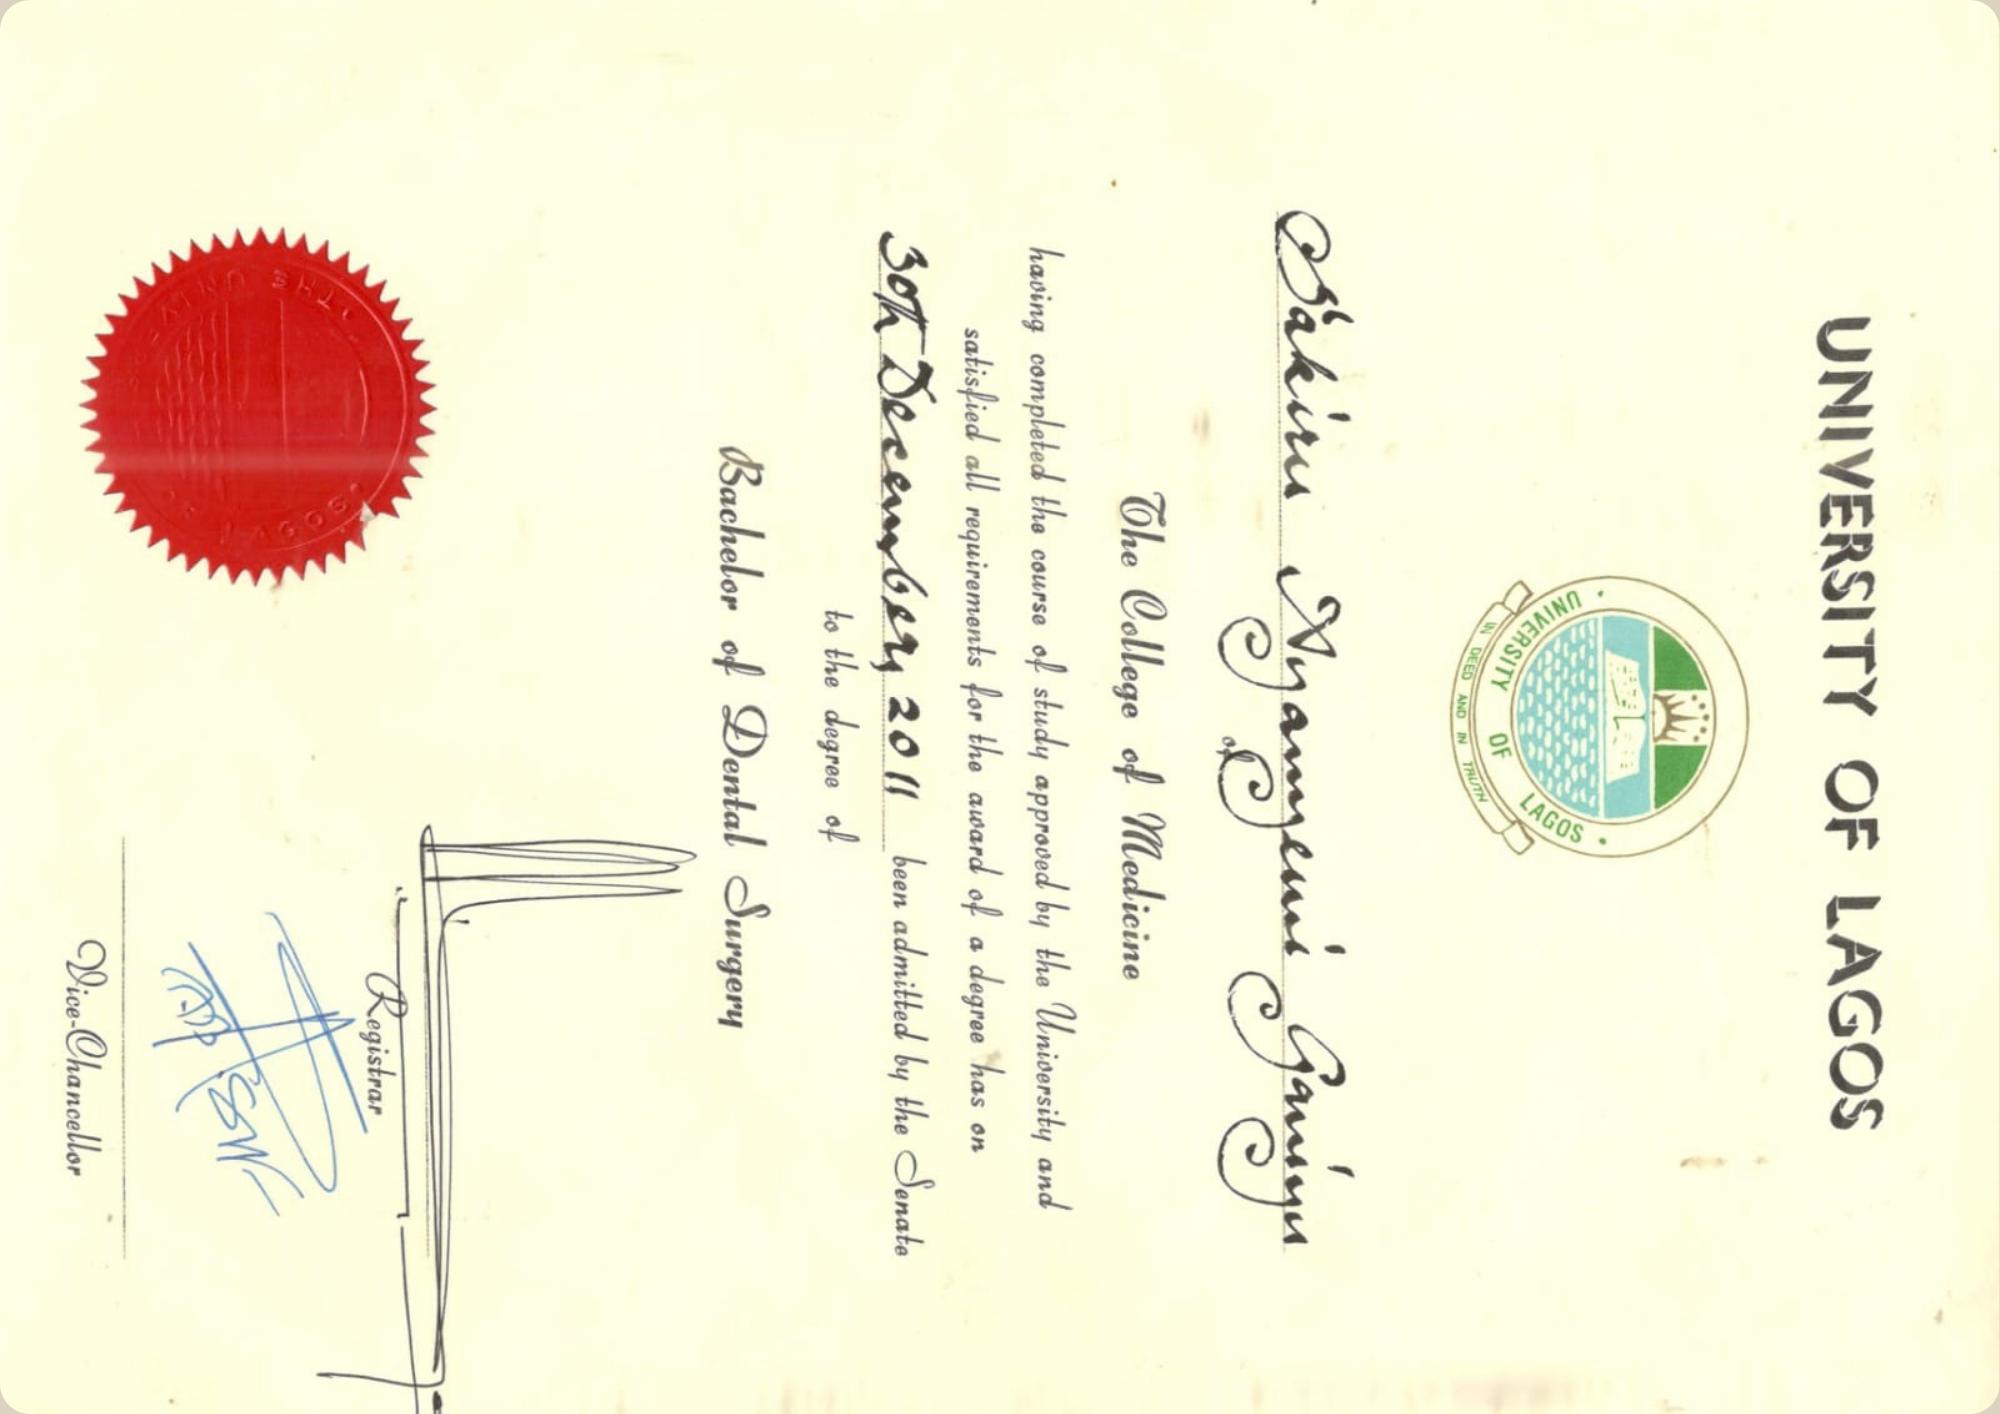 UNIVERSITY OF LAGOS
UNIVERSITY OF LAGOS
IN DEED AND IN TRUTH
Sákíru Ayányemí Ganíyu
of
The College of Medicine
having completed the course of study approved by the University and
satisfied all requirements for the award of a degree has on
30th December, 2011 been admitted by the Senate
to the degree of
Bachelor of Dental Surgery
Registrar
Vice-Chancellor
LAGOS